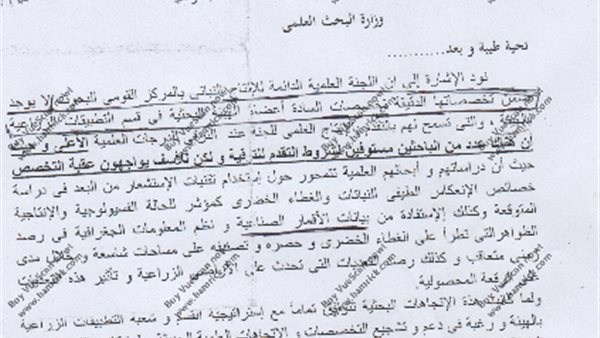 وزارة البحث العلمى
تحية طيبة و بعد ..........
نود الإشارة إلى ان اللجنة العلمية الدائمة للإنتاج النباتى بالمركز القومى للبحوث لا يوجد
ضمن تخصصاتها الدقيقة تخصصات السادة أعضاء الهيئة البحثية في قسم التطبيقات الزراعية
و والتى تسمح لهم بالتقدم العلمى للجنة عند الدرجات العلمية الأعلى و
ان هناك عدد من الباحثين مستوفين لشروط التقدم للترقية و لكن للأسف يواجهون عقبة التخصص
حيث أن دراساتهم و أبحاثهم العلمية تتمحور حول إستخدام تقنيات الإستشعار من البعد في دراسة
خصائص الإنعكاس الطيفى للنباتات والغطاء الخضارى كمؤشر للحالة الفسيولوجية والإنتاجية
المتوقعة وكذلك الإستفادة من بيانات الأقمار الصناعية و نظم المعلومات الجغرافية في رصد
الظواهر التى تطرأ على الغطاء الخضرى و حصره و تصنيفه على مساحات شاسعة و خلال مدى
زمنى متعاقب و كذلك رصد التى تحدث على الزراعية و تأثير هذه
المتوقعة المحصولية.
ولما كانت هذه الإتجاهات البحثية تتوافق تماما مع إستراتيجية القسم و شعبه التطبيقات الزراعية
بالهيئة و رغبة في دعم و تشجيع التخصصات و الإتجاهات العلمية
Buy VueScan.net
www.hamrick.com